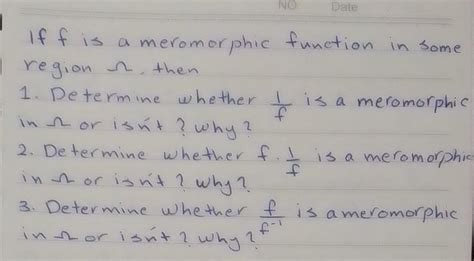 NO Date
If f is a meromorphic function in some
region Ω, then
1. Determine whether 1/f is a meromorphic
in Ω or isn't ? why ?
2. Determine whether f . 1/f is a meromorphic
in Ω or isn't ? why ?
3. Determine whether f/f⁻¹ is a meromorphic
in Ω or isn't ? why ?